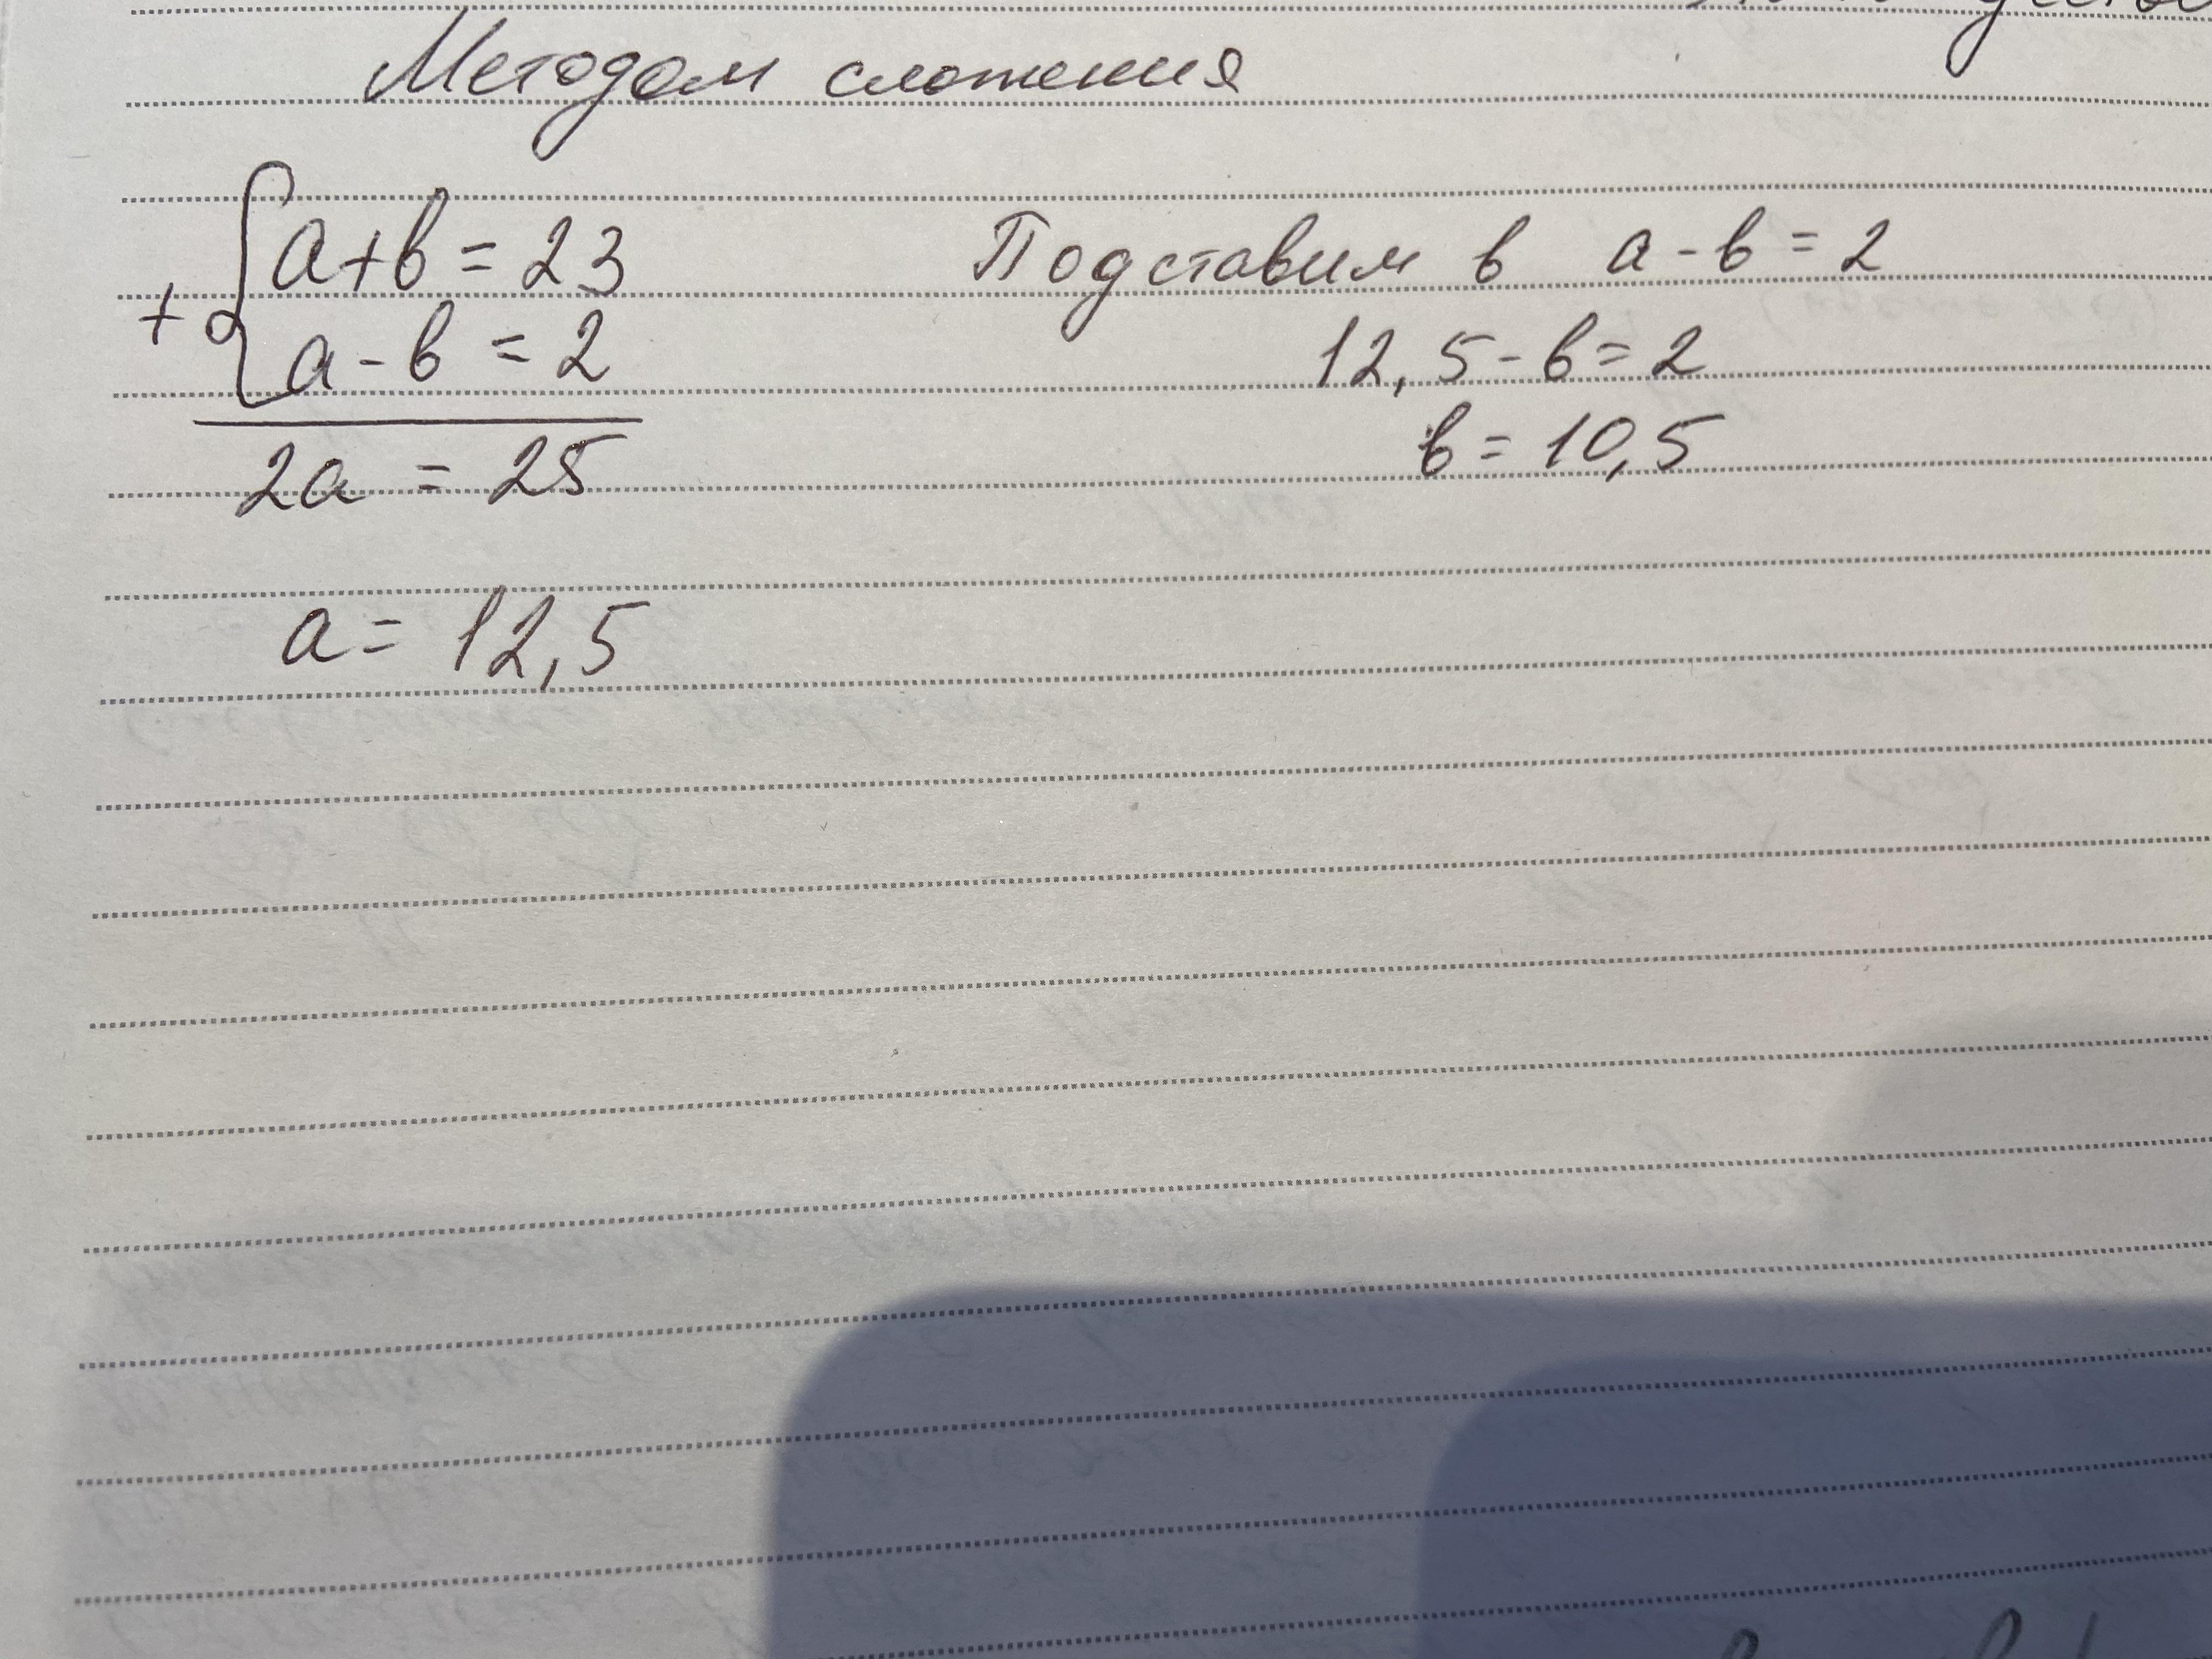 Методом сложения
a+b = 23
+
a-b = 2
2a = 25
a= 12,5
Подставим в a-b = 2
12,5-b=2
b= 10,5